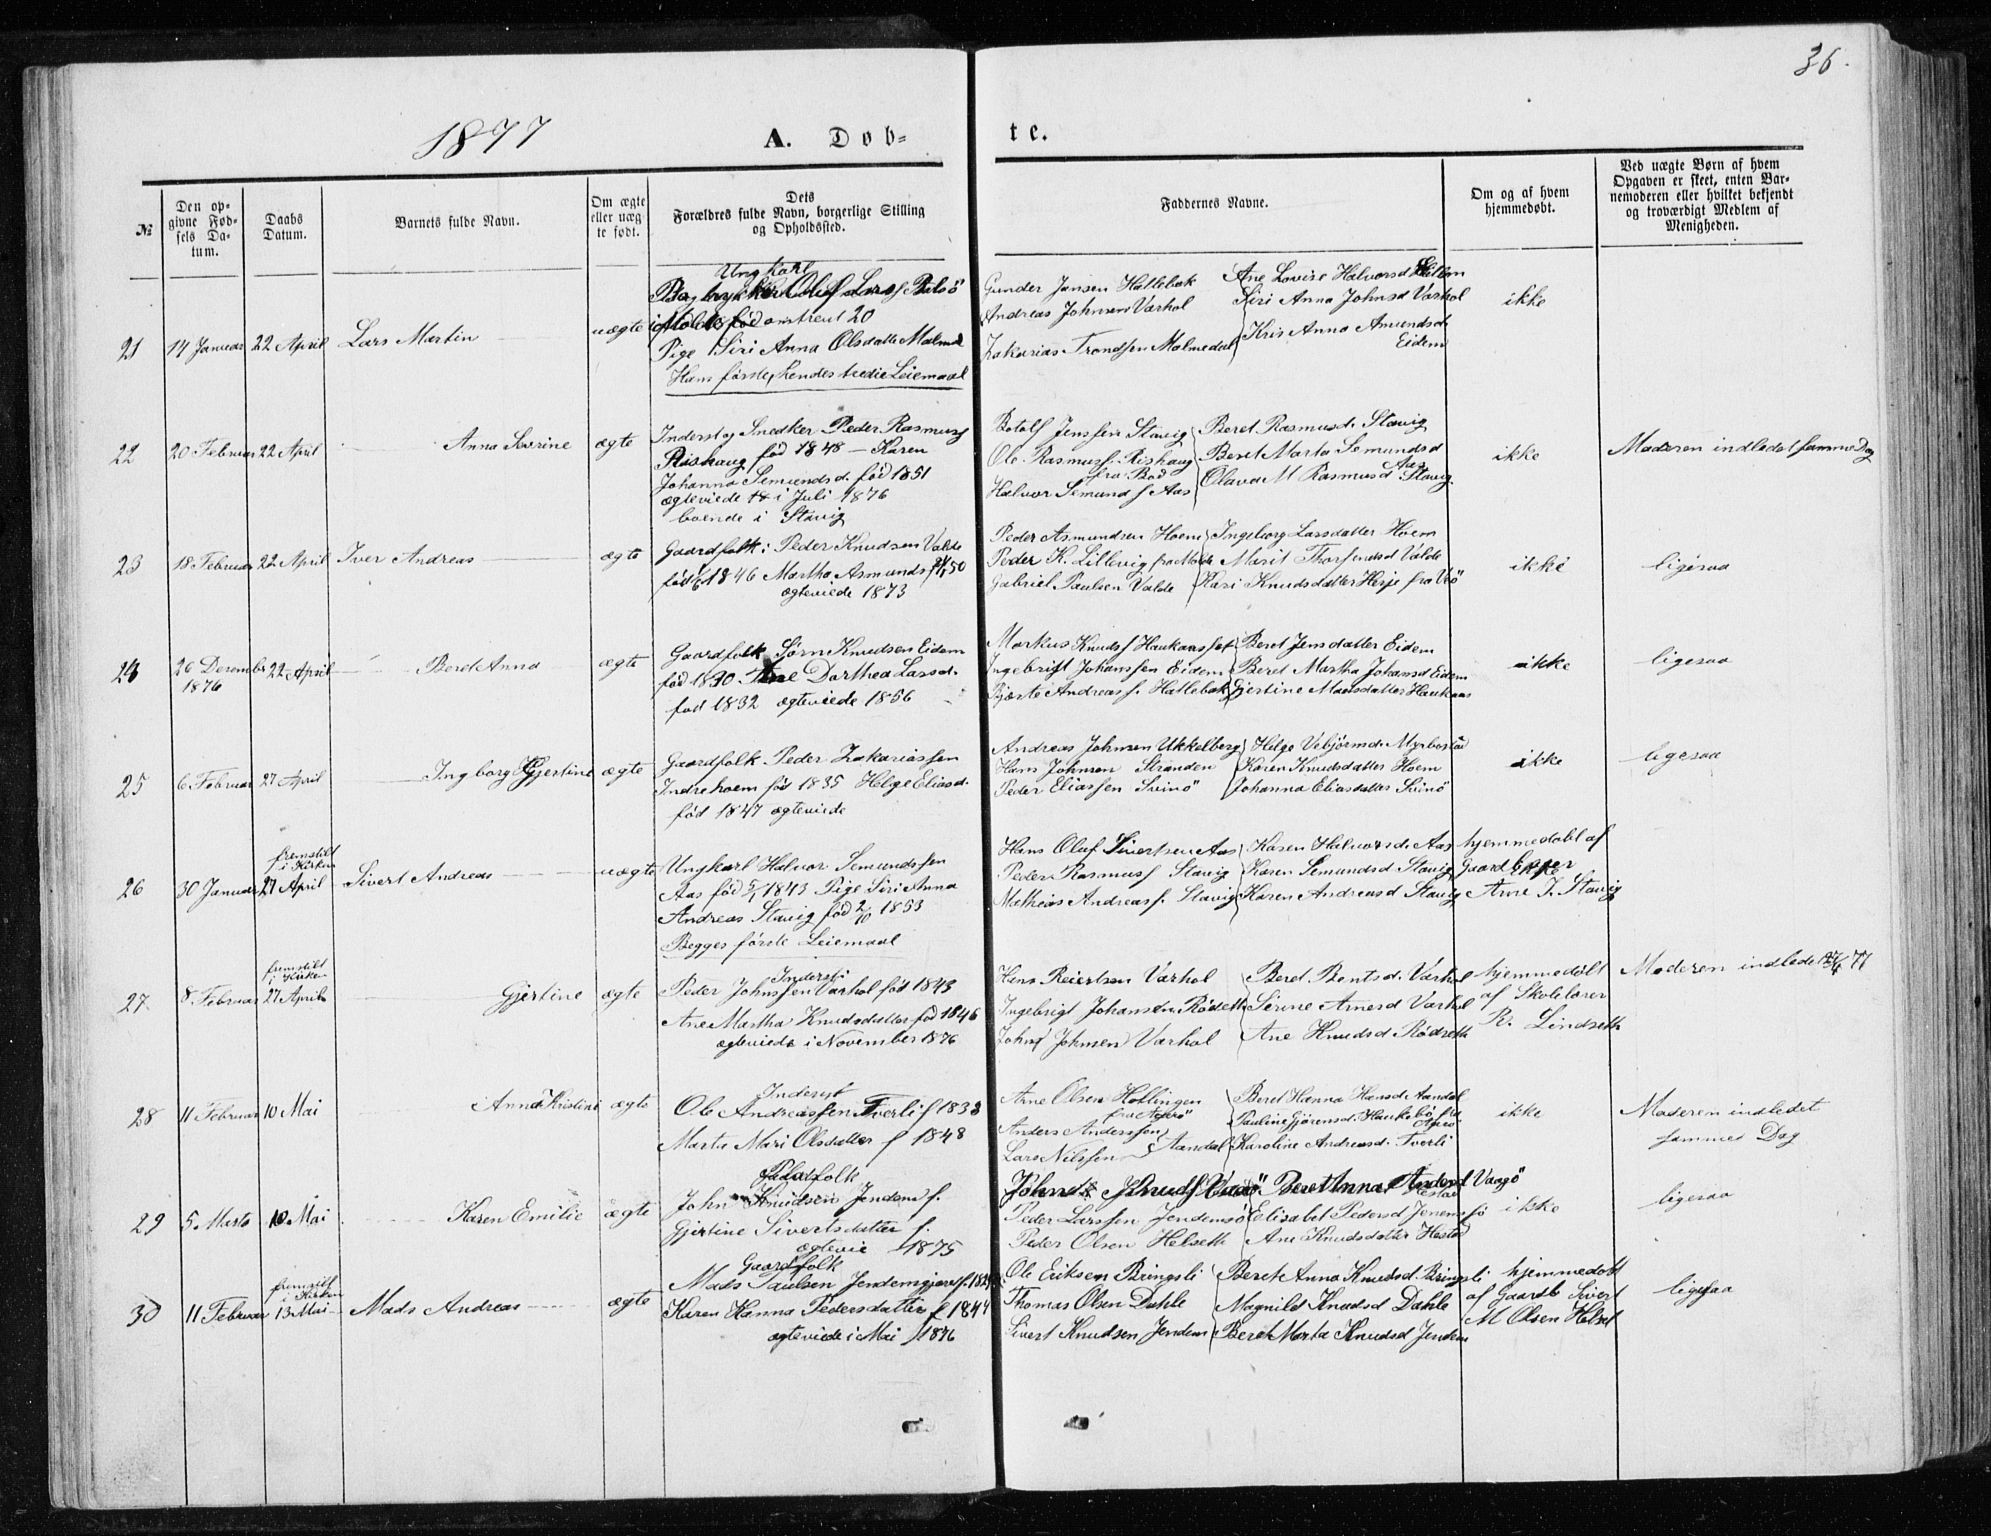 36.
1877
A. Døb=
te.
№
Den opgivne Fødsels Datum.
Daabs Datum.
Barnets fulde Navn.
Om ægte eller uægte født.
Dets Forældres fulde Navn, borgerlige Stilling og Opholdssted.
Faddernes Navne.
Om og af hvem hjemmedøbt.
Ved uægte Børn af hvem Opgaven er skeet, enten Barnemoderen eller hvilket bekjendt og troværdigt Medlem af Menigheden.
21
14 Januar
22 April
Lars Martin
uægte
Ungkarl
Olaf Larsf
i Molde født omtrent 20
Pige Siri Anna Olsdatter
Hans første, hendes tredie Leiemaal
Gunder Jansen Hatlebak
Andreas Johnsen Varhol
Zakarias Trondsen Malmedal
Ane Lovise Halvorsd Eidem
Siri Anna Johnsd Varhol
Kris Anna Amundsd
Eidem
ikke
22
20 Februar
22 April
Anna Sverine
ægte
Inderst og Snedker Peder Rasmusf
Rishaug fød 1848 – Karen
Johanna Semundsd. fød 1851
ægteviede 14 i Juli 1876
boende i Stavig
Botolf Jenssen Stavig
Ole Rasmusf. Rishaug
fra Bod
Halvor Semundf Aas
Beret Rasmusd. Stavig
Beret Marta Semundsd
Aas
Olava M Rasmusd Stavig
ikke
Moderen indledet samme Dag
23
18 Februar
22 April
Iver Andreas
ægte
Gaardfolk: Peder Knudsen Valde
fød 1846 Martha Asmundsf 50
ægteviede 1873
Peder Asmundsen Hoem
Peder K. Lillevig fra Molde
Gabriel Paulsen Valde
Ingeborg Larsdatter Hoem
Marit Thorsensd Valde
Kari Knudsdatter Herje fra Veø
ikke
ligesaa
24
26 December 1876
22 April
Beret Anna
ægte
Gaardfolk Jørn Knudsen Eidem
fød 1830 Ane Dorthea Larsd.
fød 1832 ægteviede 1856
Markus Knudsf Haukaas
Ingebrigt Johanssen Eidem
Andreasf. Hatlebak
Beret Jensdatter Eidem
Beret Martha Johansd Eidem
Gjertine Madsdatter Haukaas
ikke
ligesaa
25
6 Februar
27 April
Ingborg Gjertine
ægte
Gaardfolk Peder Zakariassen
Indrehoem fød 1835 Helge Eliasd.
fød 1847 ægteviede
Andreas Johnsen Ukkelberg
Hans Johnsen Stranden
Peder Eliassen Svinø
Helge Vebjørnsd. Myrbostad
Karen Knudsdatter Hoem
Johanna Eliasdatter Svinø
ikke
ligesaa
26
30 Januar
fremstilt
i Kirken
27 April
Sivert Andreas
uægte
Ungkarl Halvor Semundssen
Aas fød 5/1 1843 Pige Siri Anna
Andreas Stavig fød 2/10 1853
Begges første Leiemaal
Hans Olaf Sivertsen Aas
Peder Rasmusf Stavig
Mathias Andreasf. Stavig
Karen Halvorsd. Aas
Karen Semundsd Stavig
Karen Andreasd Stavig
hjemmedøbt af
Gaardbruger
Arne J. Stavig
27
8 Februar
fremstilt
i Kirken
27 April
Gjertine
ægte
Inderst
Peder Johnssen Varhol fød 1843
Ane Martha Knudsdatter fød 1846
ægteviede i November 1876
Hans Reiertsen Varhol
Ingebrigt Johansen Rødseth
John Johnsen Varhol
Beret Bentsd. Varhol
Sørine Arnesd Varhol
Ane Knudsd Rødseth
hjemmedølt
af Skolelærer
R. Lindseth
Moderen indledet 27/4 77
28
11 Februar
10 Mai
Anna Kristine
ægte
Inderst
Ole Andreassen Tverli f 1838
Marta Mari Olsdatter f 1848
Arne Olsen Hollingen
fra Agerø
Anders Anderssen
Lars Nilssen
Aandal
Beret Hanna Hansd Aandal
Pauline Gjørensd. Haukebø fra
Agerø
Karoline Andreasd. Tverli
ikke
Moderen indledet
sammes Dag
29
5. Marts
10 Mai
Karen Emilie
ægte
Pladsfolk
John Knudsen Jendem f.
Gjertine Sivertsdatter f.
ægtevie 1875
John Knudsf
Peder Larssen Jendemsø
Peder Olsen Helseth
Beret Anna Andersd Vaagø
Elisabet Pedersd Jenemsø
Ane Knudsdatter Hestad
ikke
ligesaa
30
11 Februar
fremstilt
i Kirken
13 Mai
Mads Andreas
ægte
Gaardfolk
Mads Paulsen Jendemsgjære
Karen Hanna Pedersdatter f 1844
ægteviede i Mai 1876
Ole Eriksen Bringsli
Thomas Olsen Dahle
Sivert Knudsen Jendem
Beret Anna Knudsd Bringsli
Magnild Knudsd Dahle
Beret Marta Knudsd Jendem
hjemmedøbt
af Gaardb Sivert
M Olsen Helset
ligesaa